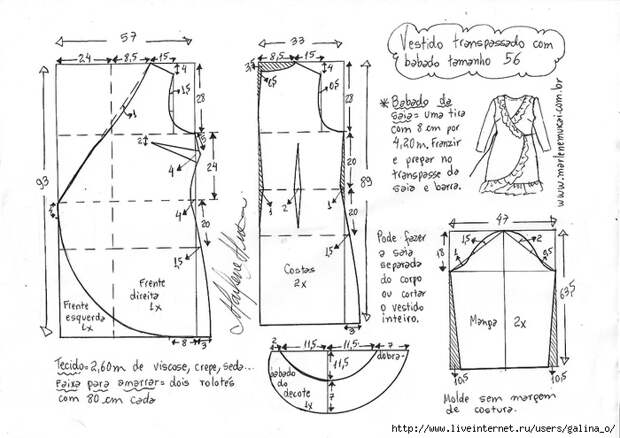 Vestido transpassado com
babado tamanho 56
* Babado da
saia = uma tira
com 8 cm por
4,20m. Franzir
e prepar no
transpasse da
saia e barra.
www.marlenemukai.com.br
57
24
8,5
15
4
1,5
28
1
93
24
4
4
20
1,5
2
Frente
esquerda
1x
Frente
direita
1x
8
3
33
8,5
15
3,5
1,5
4
0,5
28
20
89
1
2
1
20
1,5
Costas
2x
3
Pode fazer
a saia
separada
do corpo
ou cortar
o vestido
inteiro.
47
18
1
1,5
2
0,5
63,5
Manga 2x
10,5
10,5
Molde sem margem
de costura.
Tecido = 2,60m de viscose, crepe, seda...
Faixa para amarrar = dois rolotês
com 80 cm cada
2
11,5
11,5
7
dobra
11,5
7
babado
do
decote
1x
http://www.liveinternet.ru/users/galina_o/